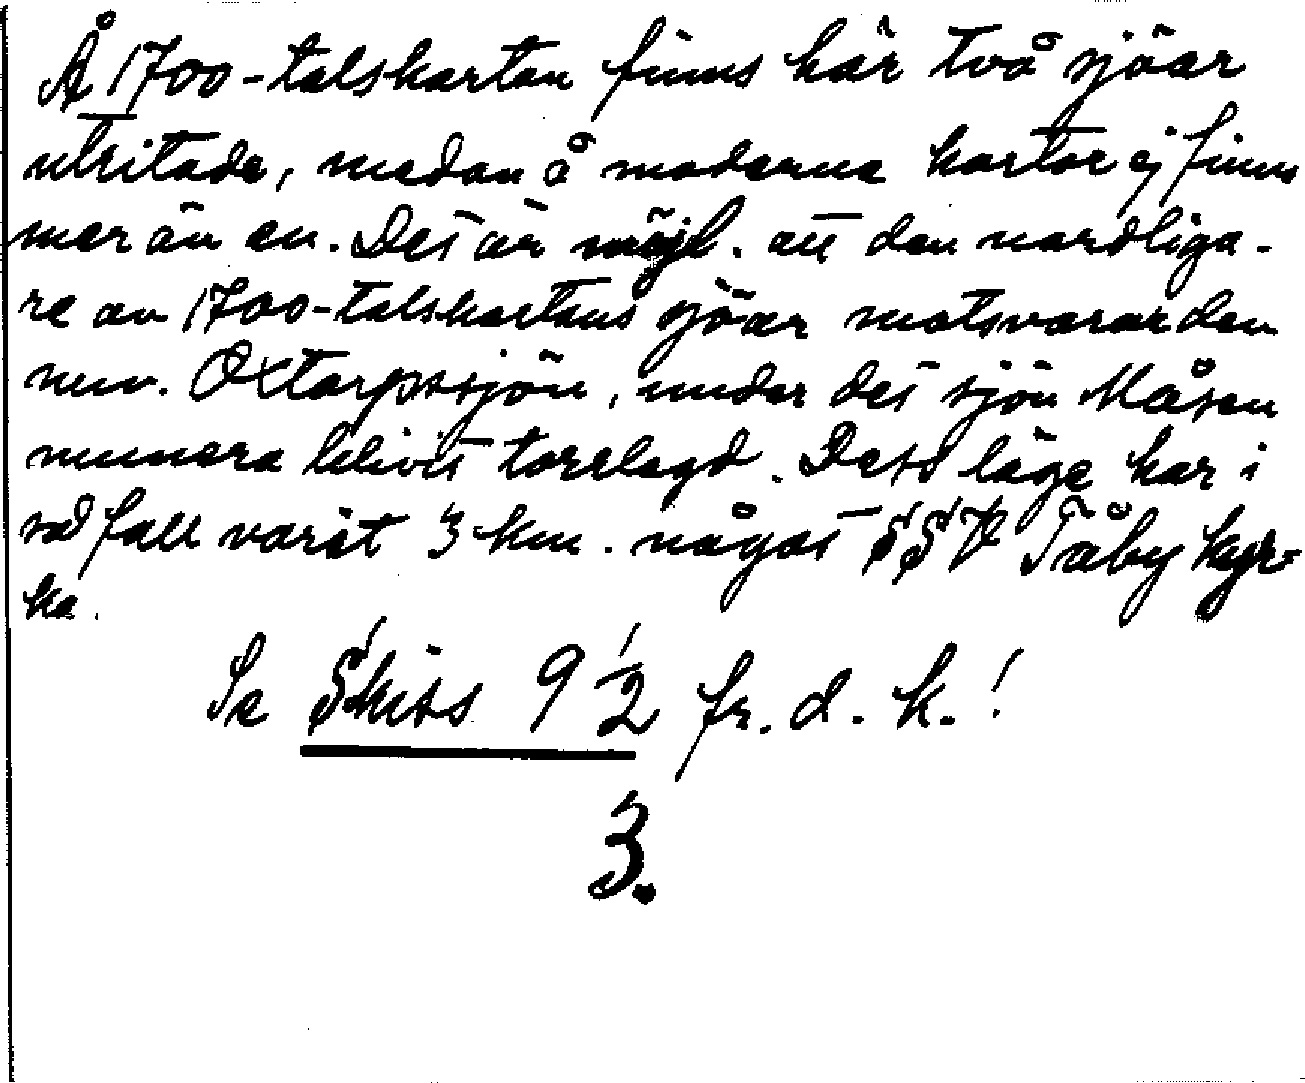 Å 1700-talskartan finns här två sjöar
utritade, medan å moderna kartor ej finns
mer än en. Det är möjl. att den nordliga-
re av 1700-talskartans sjöar motsvarar den
nuv. Oxtorpssjön, under det sjön Måsen
numera blivit torrlagd. Dess läge har i
så fall varit 3 km. något SSV Täby kyr-
ka.
Se Skiss 9 1/2 fr. d. k.!
3.